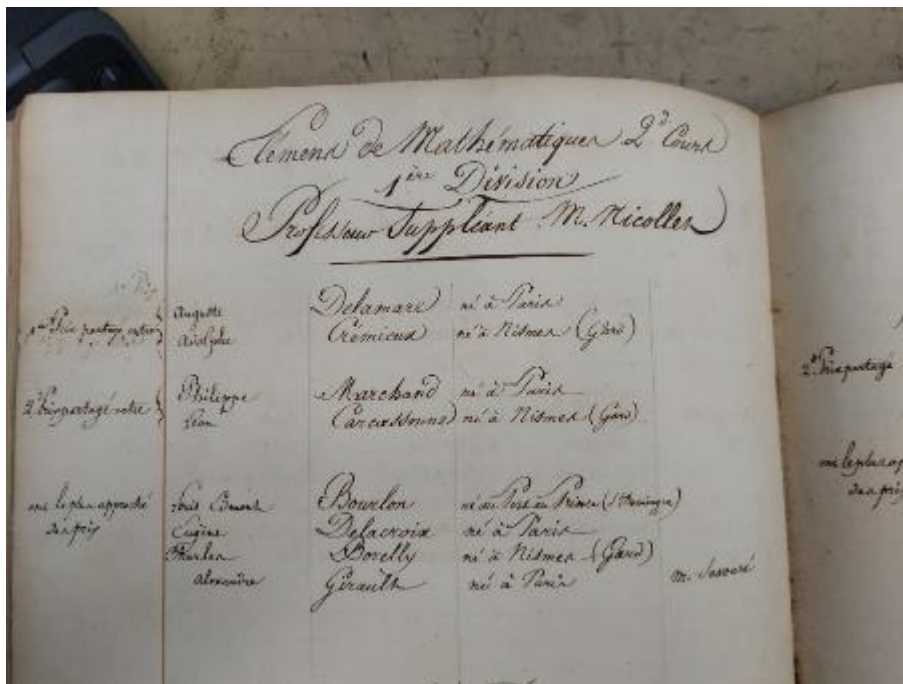 Élémens de Mathématiques 2.d Cours
1ère Division
Professeur Suppléant M. Nicolles
1er Prix partagé entre } Auguste Delamare né à Paris
Adolphe Crémieux né à Nismes (Gard)
2.d Prix partagé entre } Philippe Marchand né à Paris
Léon Carcassonne né à Nismes (Gard)
ont le plus approché Louis Bourlon né au Port au Prince (St Domingue)
des prix Eugène Delacroix né à Paris
Charles Borelly né à Nismes (Gard)
Alexandre Girault né à Paris M.
2.d Prix partagé
ont le plus
des prix